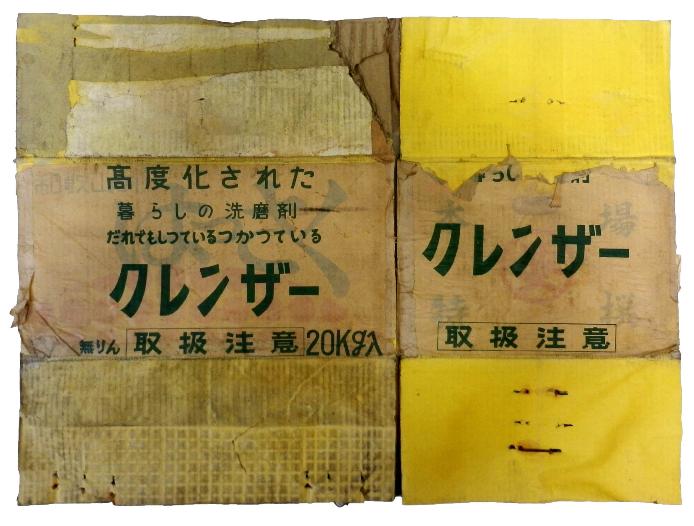 高度化された
暮らしの洗磨剤
だれでもしつているつかつている
クレンザー
無りん 取扱注意 20Kg入
クレンザー
取扱注意